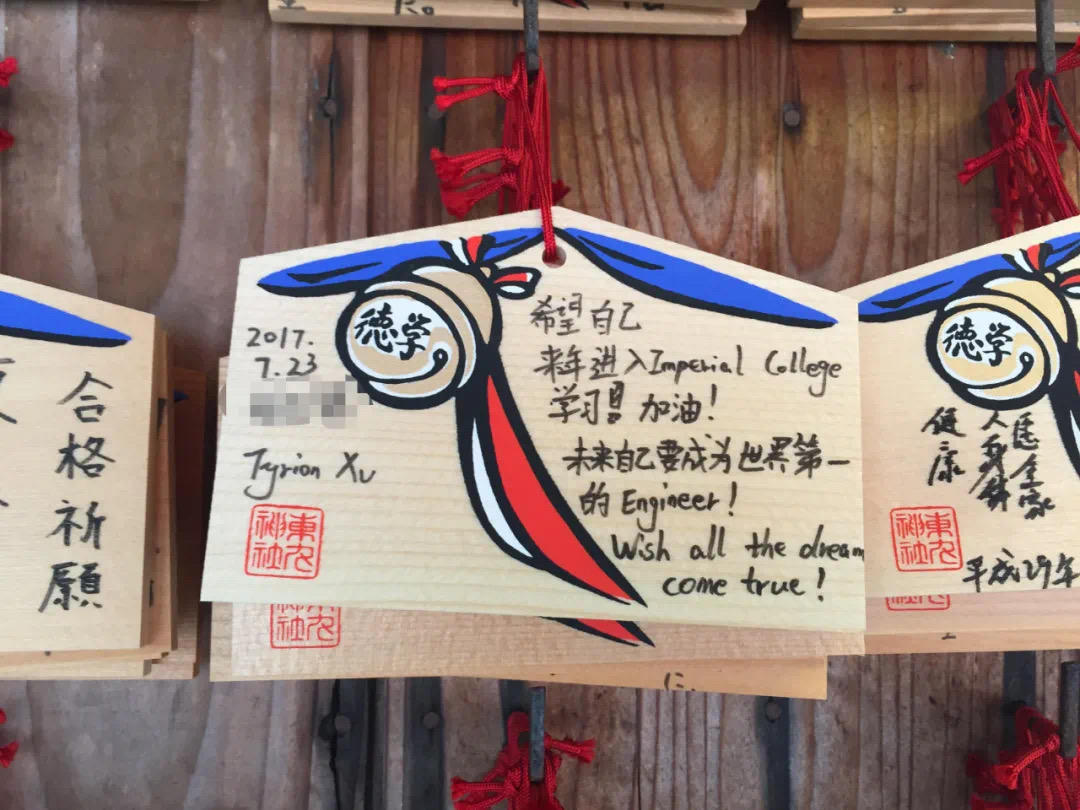 合格祈願
2017.
7.23
Tyrion Xu
学徳
東丸
神社
希望自己
来年进入Imperial College
学习!!! 加油!
未来自己要成为世界第一
的Engineer!
Wish all the dream
come true!
学徳
健康
東丸
神社
平成29年
に